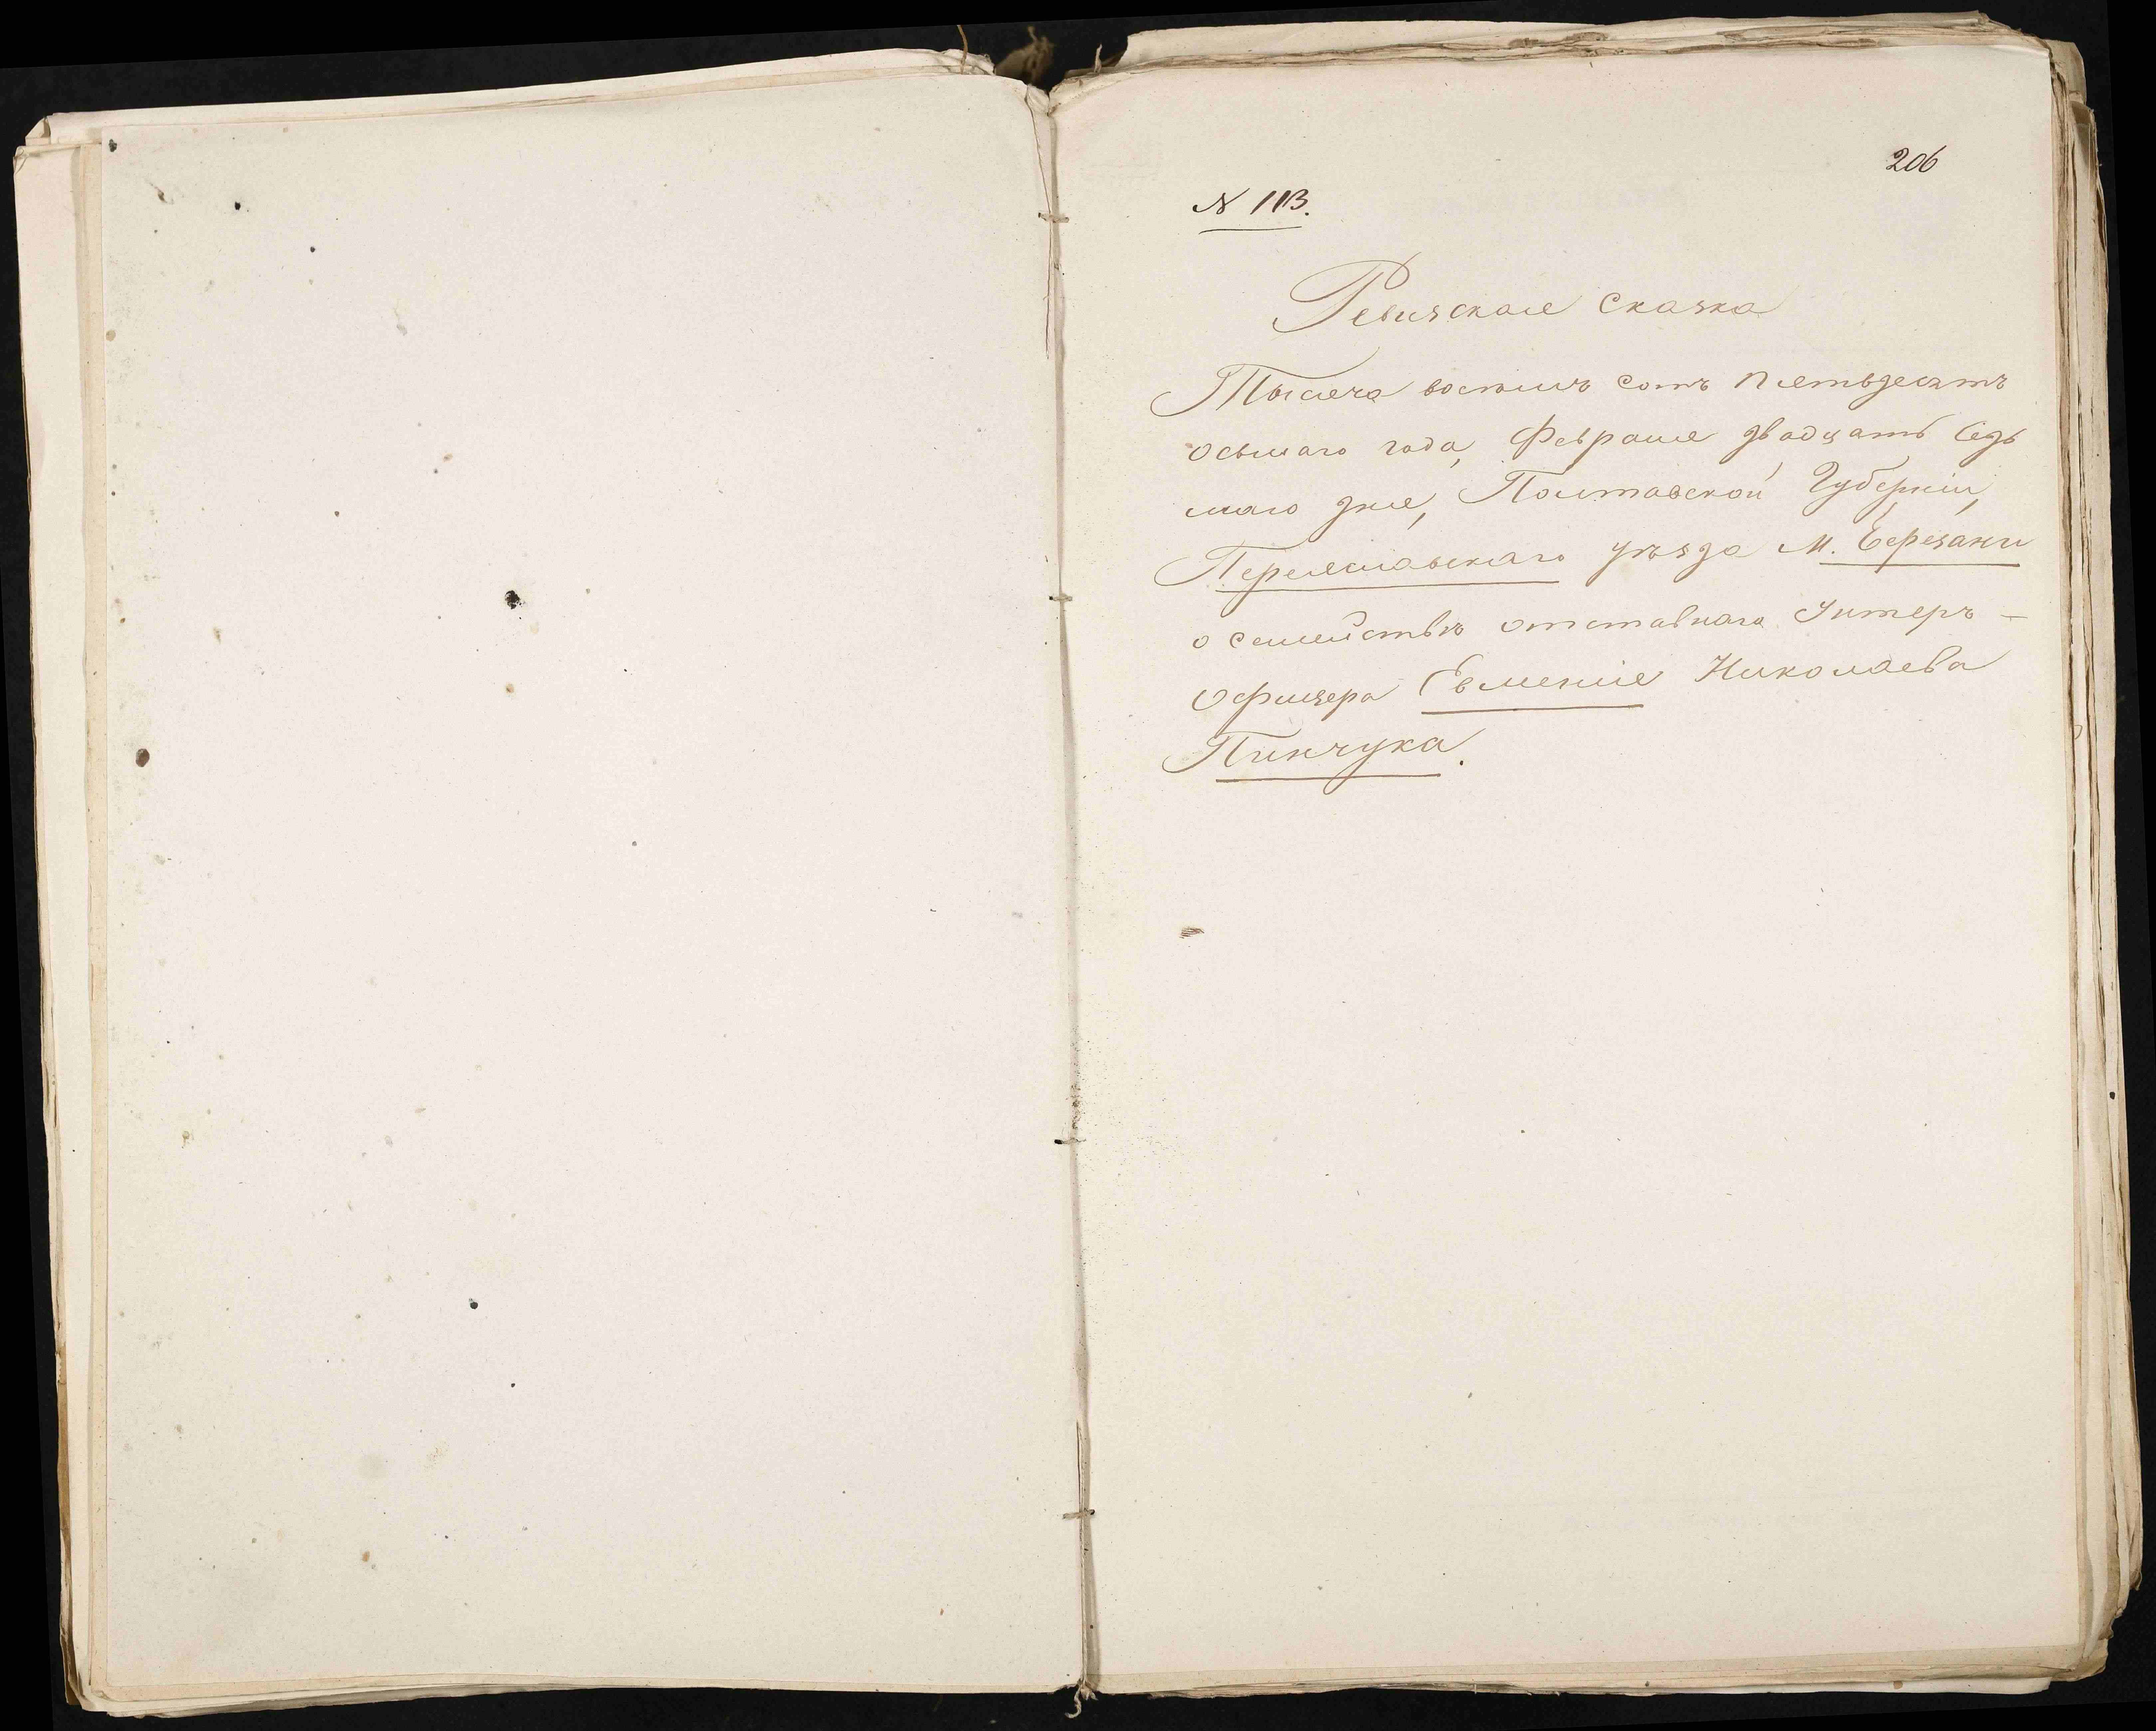 206
N 113.
Ревизская сказка
Тысяча восемь сотъ пятьдесятъ
осьмаго года, Февраля двадцать седь
маго дня, Полтавской Губерніи,
Переяславскаго уѣзда М. Березани
о семействѣ отставнаго Унтеръ-
Офицера Евменія Николаева
Пинчука.